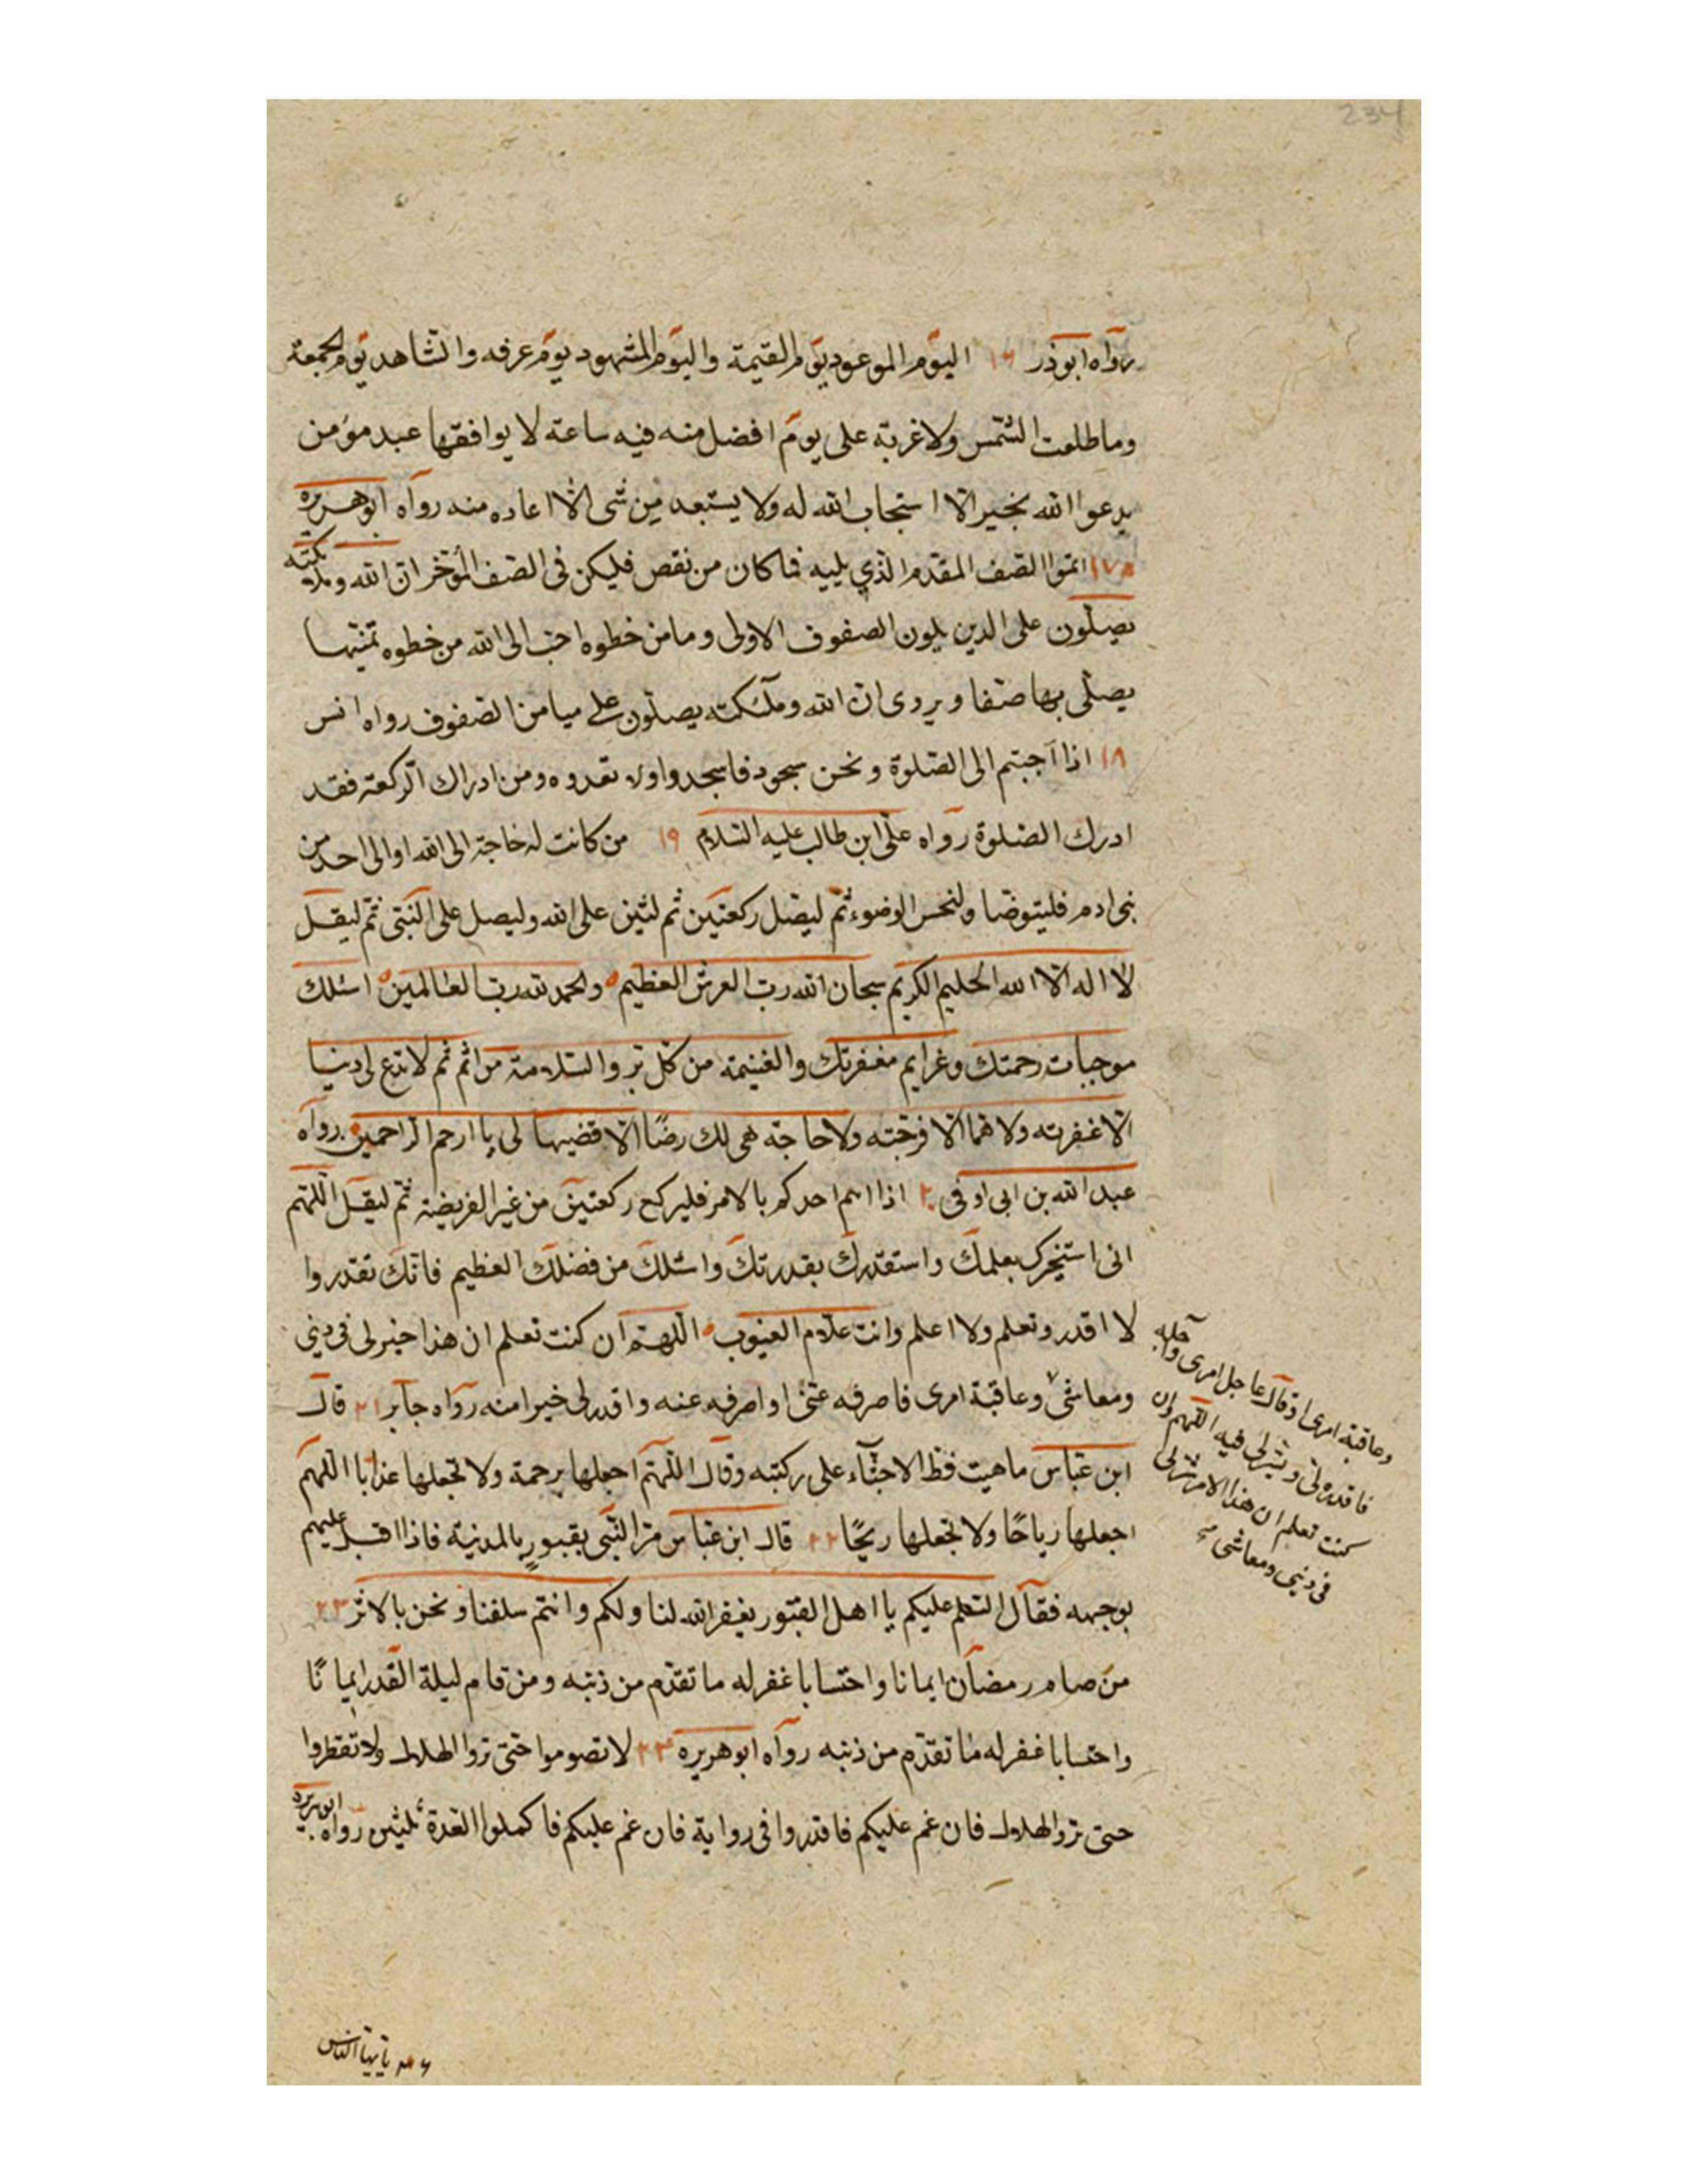 234
رواه ابوذر ١٦ اليوم الموعود يوم القيمة واليوم المشهود يوم عرفه والشاهد يوم الجمعة
وما طلعت الشمس ولا غربة على يوم افضل منه فيه ساعته لا يوافقها عبد مؤمن
يدعوا الله بخير الا استجاب الله له ولا يستعيد من شى الا اعاده منه رواه ابوهريره
١٧ اتموا الصف المقدم الذي يليه فما كان من نقص فليكن فى الصف المؤخر ان الله وملائكته
يصلون على الذين يلون الصفوف الاولى وما من خطوه احب الى الله من خطوه تمشيها
يصلى بها صفا ويروى ان الله وملئكته يصلون على ميامن الصفوف رواه انس
١٨ اذا اجبتم الى الصلوة ونحن سجود فاسجدوا ولا تعدوه ومن ادراك الركعة فقد
ادرك الصلوة رواه على ابن طالب عليه السلام ١٩ من كانت له حاجة الى الله او الى احد من
بنى ادم فليتوضا ولنحسن الوضوء ثم ليصل ركعتين ثم لنثين على الله وليصل على النبى ثم ليقل
لا اله الا الله الحليم الكريم سبحان الله رب العرش العظيم والحمد لله رب العالمين اسئلك
موجبات رحمتك وغرايم مغفرتك والغنيمة من كل بر والسلامة من اثم ثم لا تدع لى دنيا
الا غفرته ولا هما الا فرجته ولا حاجة هى لك رضًا الا قضيها لى يا ارحم الراحمين رواه
عبد الله بن ابى اوفى ٢٠ اذا اهم احدكم بالامر فليركع ركعتين من غير الفريضة ثم ليقل اللهم
انى استخيرك بعلمك واستقدرك بقدرتك واسئلك من فضلك العظيم فانك تقدر وا
لا اقدر وتعلم ولا اعلم وانت علام الغيوب اللهم ان كنت تعلم ان هذا خير لى فى دينى
ومعاشى وعاقبة امرى فاصرفه عنى او امرفه عنه واقدر لى خيرا منه رواه جابر ٢١ قال
ابن عباس ما هبت قط الا جثآء على ركبته وقال اللهم اجعلها برحمة ولا تجعلها عذابا اللهم
اجعلها رياحًا ولا تجعلها ريحًا ٢٢ قال ابن عباس مر النبى بقبور بالمدينة فاذا اقبل عليهم
بوجهه فقال السلم عليكم يا اهل القبور يغفر الله لنا ولكم وانتم سلفنا ونحن بالاثر ٢٣
من صام رمضان ايمانا واحتسابا غفر له ما تقدم من ذنبه ومن قام ليلة القدر ايمانًا
واحتسابا غفر له ما تقدم من ذنبه رواه ابو هريره ٢٤ لا تصوموا حتى تروا الهلال ولا تفطروا
حتى تروا الهلال فان غم عليكم فاقدروا فى رواية فان غم عليكم فاكملوا العدة ثلثين رواه ابوهريره
وعاقبة امرى او قال عاجل امرى وآجله
فاقدره لى ويسر لى فيه اللهم وان
كنت تعلم ان هذا الامر شر لى
فى دينى ومعاشى
يا ايها الناس